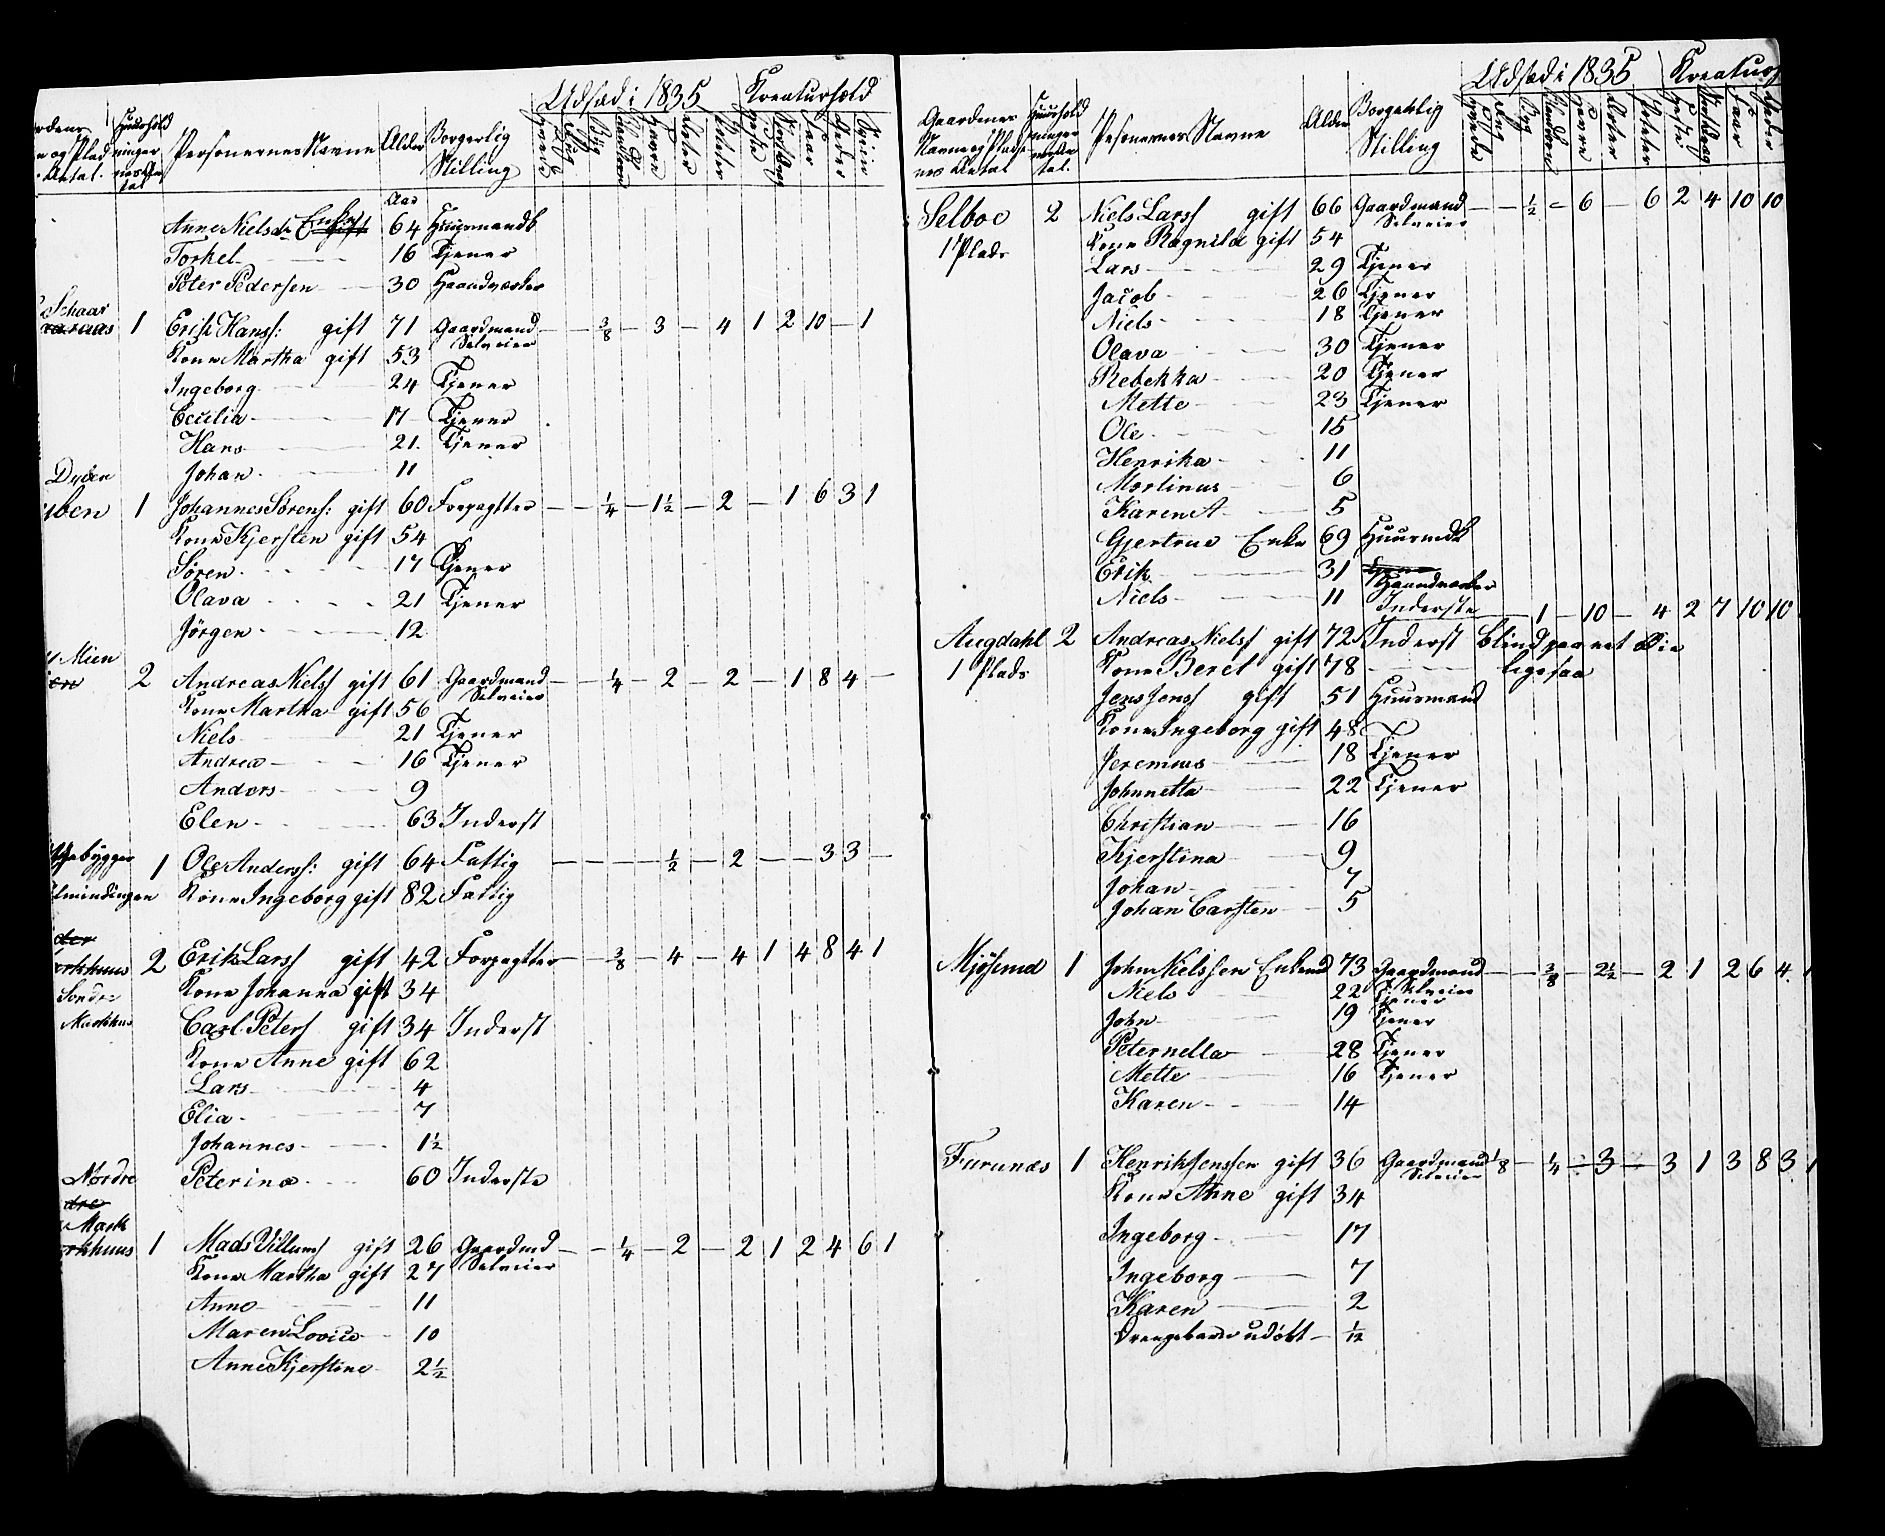 Udsæd i 1835 Kreaturhold
Huushold Personernes Navne Alder Borgerlig Stilling
Aar
Anne Nielsdr Enke gift 64 Huusmands
Torkel 16 Tjener
Peter Pedersen 30 Haandværker
Schaar
1 Erik Hanss: gift 71 Gaardmand Selveier 3/8 3 4 1 2 10 1
Kone Martha gift 53
Ingeborg 24 Tjener
Cecilia 17 Tjener
Hans 21 Tjener
Johan 11
1 Johannes Sørens: gift 60 Forpagtter 1/4 1 1/2 2 1 6 3 1
Kone Kjersten gift 54
Søren 17 Tjener
Olava 21 Tjener
Jörgen 12
Mien
2 Andreas Nielss gift 61 Gaardmand Selveier 1/4 2 2 1 8 4
Kone Martha gift 56
Niels 21 Tjener
Andrea 16 Tjener
Anders 9
Elen 63 Inderst
1 Ole Anderss: gift 64 Fattig 1/2 2 3 3
Kone Ingeborg gift 82 Fattig
2 Erik Larss gift 42 Forpagtter 3/8 4 4 1 4 8 4 1
Kone Johanna gift 34
Søndre
Carl Peters gift 34 Inderst
Kone Anne gift 62
Lars 4
Elia 7
Johannes 1 1/2
Nordre Peterina 60 Inderste
Mark
1 Mads Villums gift 26 Gaardmd Selveier 1/4 2 2 1 2 4 6 1
Kone Martha gift 27
Anne 11
Maren Lovise 10
Anne Kjerstine 2 1/2
Udsæd i 1835 Kreaturh
Gaardenes Navne og Pladsenes Antal Personernes Navne Alder Borgerlig Stilling
Selboe 2 Niels Larss gift 66 Gaardmand Selveier 1/2 6 6 2 4 10 10
1 Plads Kone Ragnild gift 54
Lars 29 Tjener
Jacob 26 Tjener
Niels 18 Tjener
Olava 30 Tjener
Rebekka 20 Tjener
Mette 23 Tjener
Ole 15
Henrika 11
Martinus 6
Karen A 5
Gjertrue Enke 69 Huusmds
Erik 31 Haandværker
Niels 11 Inderste 1 10 4 2 7 10 10
Augdahl 2 Andreas Nielss gift 72 Inderst blind paa et Øie
1 Plads Kone Beret gift 78 ligesaa
Jens Jenss gift 51 Huusmand
Kone Ingeborg gift 48
Jeremias 18 Tjener
Johnnetta 22 Tjener
Christian 16
Kjerstina 9
Johan 7
Johan Carsten 5
Mjösund 1 John Nielssen Enkemd 73 Gaardmand Selveier 3/8 2 1/2 2 1 2 6 4 1
Niels 22 Tjener
John 19 Tjener
Peternella 28 Tjener
Mette 16 Tjener
Karen 14
Furunæs 1 Henrik Jenssen gift 36 Gaardmand Selveier 1/8 1/4 3 3 1 3 8 3 1
Kone Anne gift 34
Ingeborg 17
Ingeborg 7
Karen 2
Drengebarn udöbt 1/12